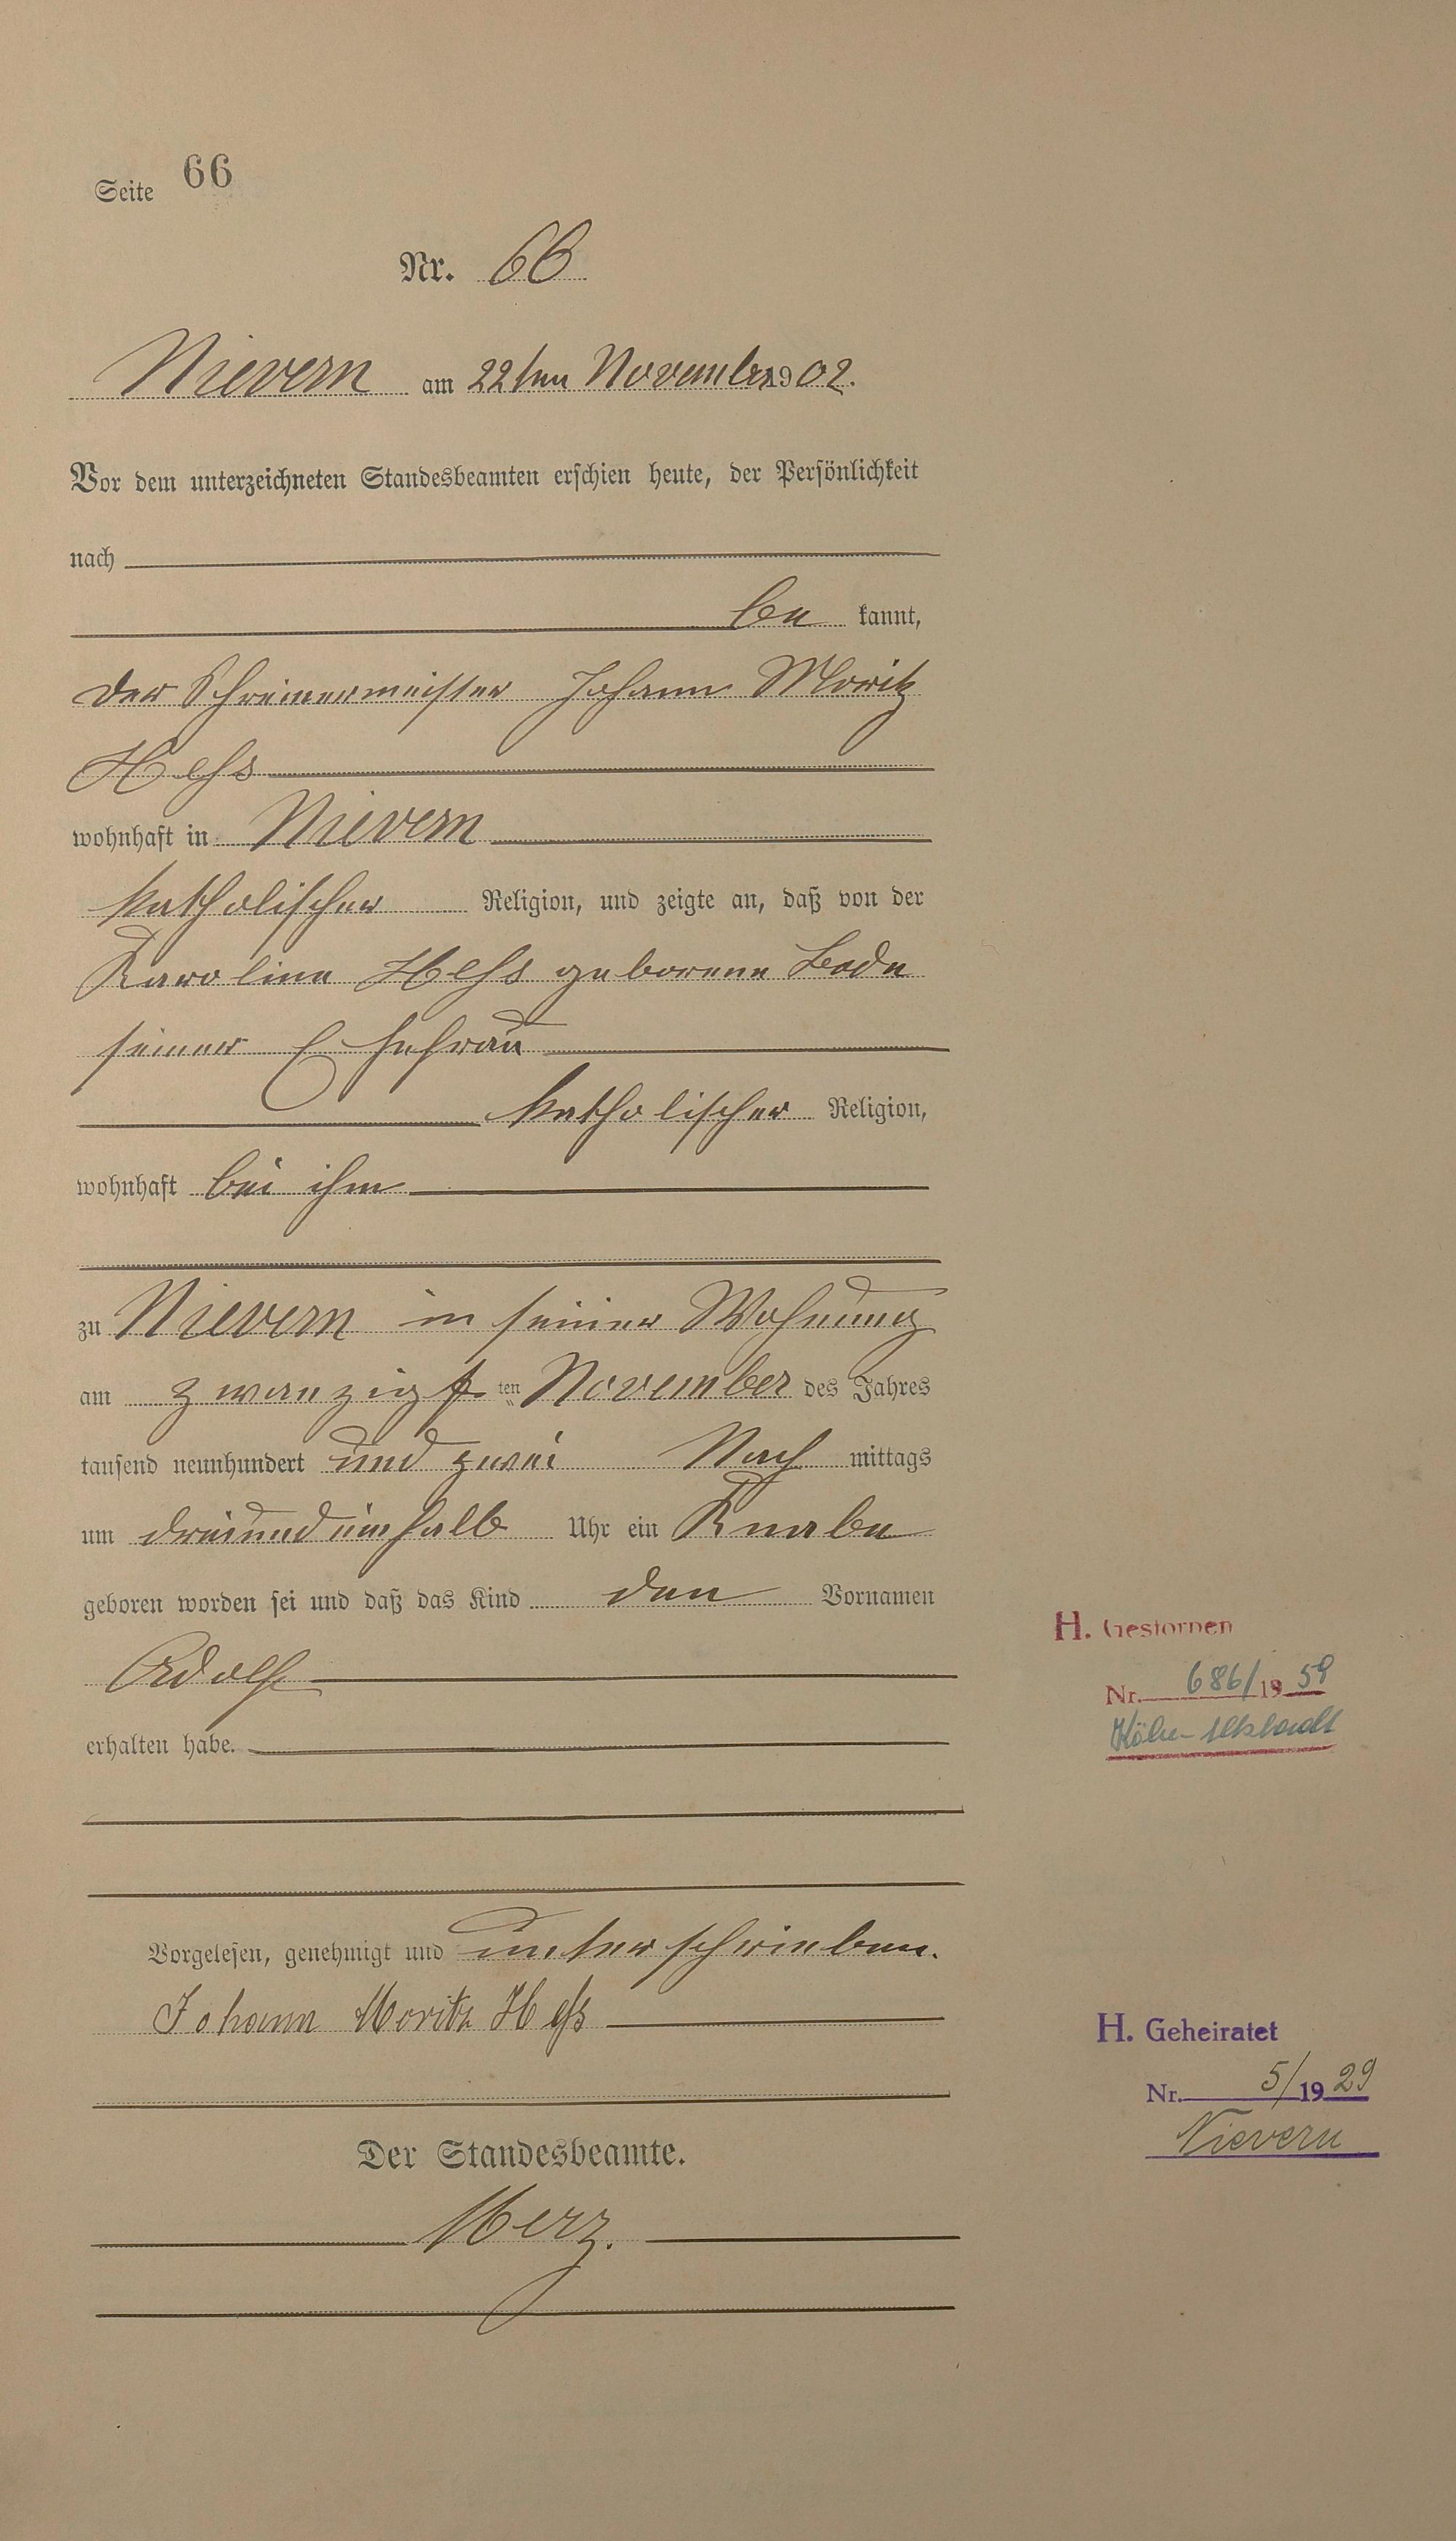 Seite 66
Nr. 66
Nievern am 22ten November 1902.
Vor dem unterzeichneten Standesbeamten erschien heute, der Persönlichkeit
nach
be kannt,
der Schreinermeister Johann Moritz
Hess
wohnhaft in Nievern
katholischer Religion, und zeigte an, daß von der
Karoline Hess geborene Bode
seiner Ehefrau
katholischer Religion,
wohnhaft bei ihm
zu Nievern in seiner Wohnung
am zwanzigsten November des Jahres
tausend neunhundert und zwei Nach mittags
um dreiundeinhalb Uhr ein Knabe
geboren worden sei und daß das Kind den Vornamen
Adolf
erhalten habe.
Vorgelesen, genehmigt und unterschrieben.
Johann Moritz Hess
Der Standesbeamte.
Merz.
H. Gestorben
Nr. 686/1959
Köln-
H. Geheiratet
Nr. 5/1929
Nievern